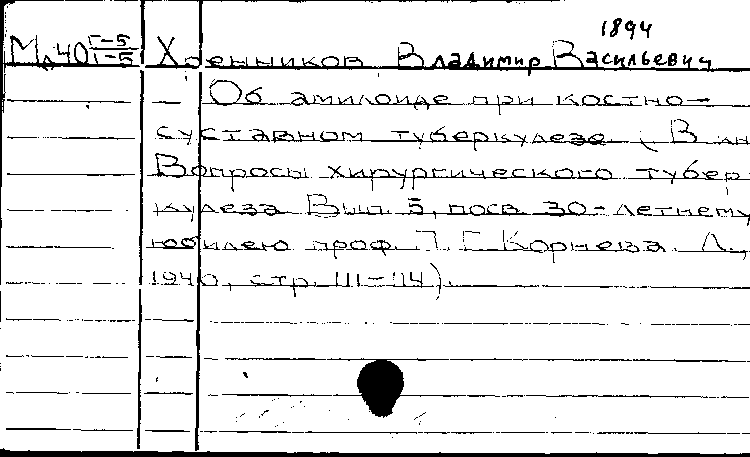 1894
Мд40 Г-5/Г-5 Хренников Владимир Васильевич
Об амилоиде при костно-
суставном туберкулезе (В кн
Вопросы хирургического тубер-
кулеза Вып. 5, посв. 30-летнему
юбилею проф. П. Г. Корнева. Л.,
1940, стр. 111-114).